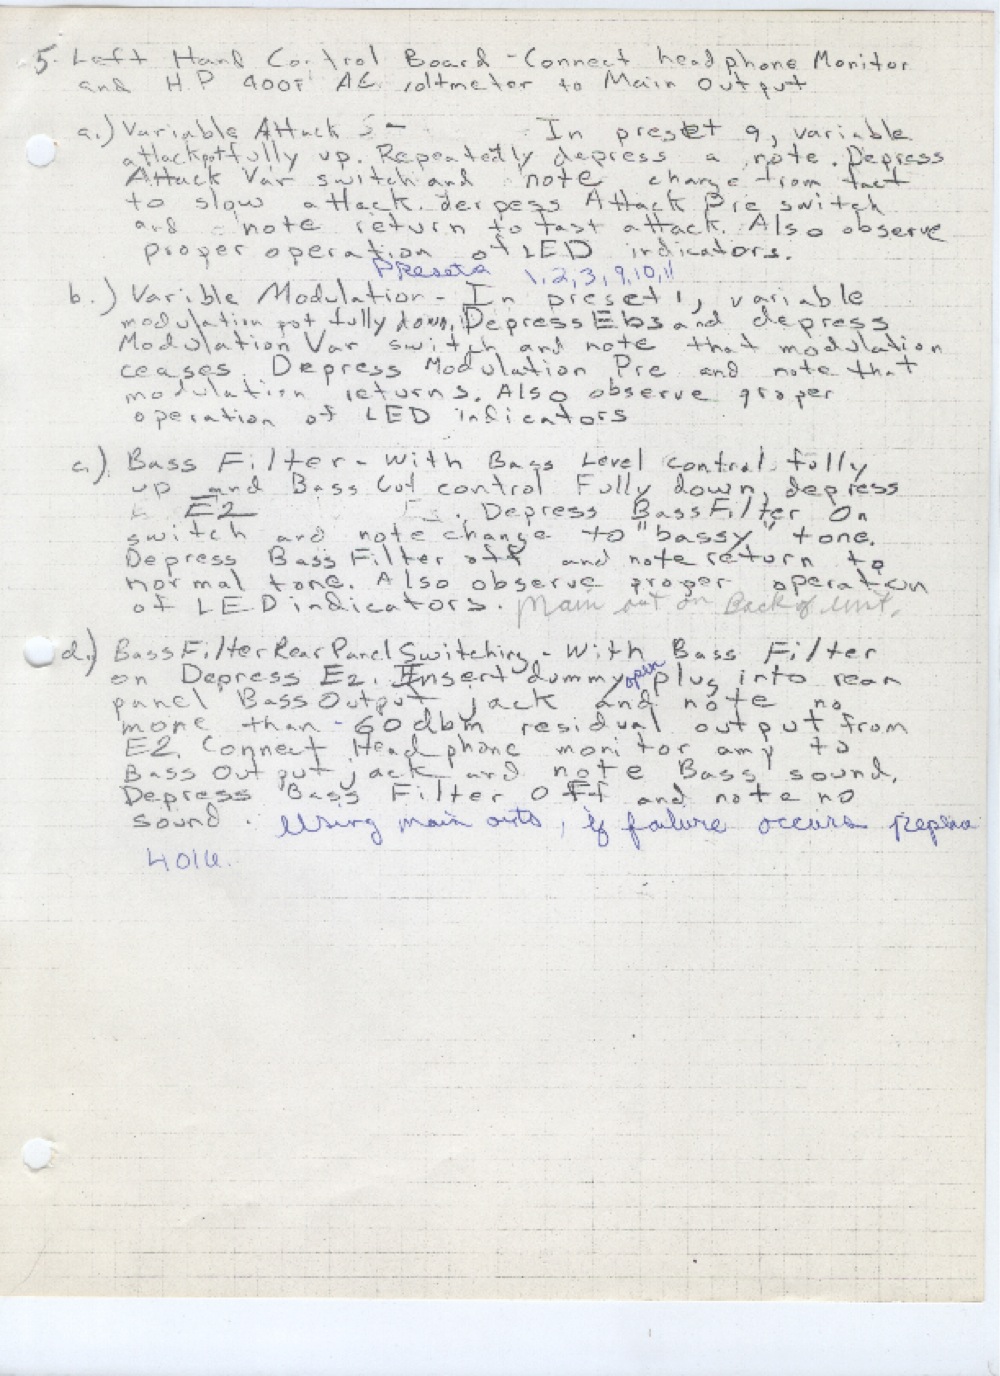 5. Left Hand Control Board - Connect headphone Monitor
and H.P 400F AC voltmeter to Main Output
a.) Variable Attack - In preset 9, variable
attack pot fully up. Repeatedly depress a note. Depress
Attack Var switch and note change from fact
to slow attack. derpess Attack Pre switch
and note return to fast attack. Also observe
proper operation of LED indicators.
Presets 1,2,3,9,10,11
b.) Varible Modulation - In preset 1, variable
modulation pot fully down. Depress Eb3 and depress
Modulation Var switch and note that modulation
ceases. Depress Modulation Pre and note that
modulation returns. Also observe proper
operation of LED indicators
c.) Bass Filter - With Bass Level control fully
up and Bass Cut control Fully down, depress
E2 . Depress Bass Filter On
switch and note change to "bassy" tone.
Depress Bass Filter off and note return to
normal tone. Also observe proper operation
of LED indicators. Main out on Back of unit.
d.) Bass Filter Rear Panel Switching - With Bass Filter
on Depress E2. Insert dummy open plug into rear
panel Bass Output jack and note no
more than -60dbm residual output from
E2. Connect Headphone monitor amp to
Bass Output jack and note Bass sound.
Depress Bass Filter Off and note no
sound. Using main outs, if failure occurs
4016.